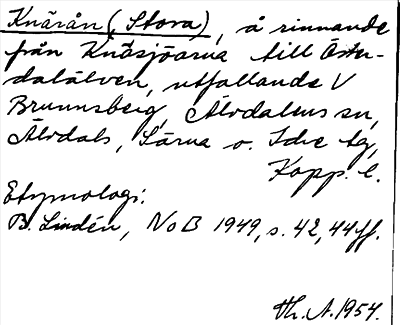 Knärån (Stora), å rinnande
från Knäsjöarna till Öster-
dalälven, utfallande V
Brunnsberg, Älvdalens sn,
Älvdals, Särna o. Idre tg,
Kopp. l.
Etymologi:
B. Lindén, NoB 1949, s. 42, 44ff.
Th. A. 1954.